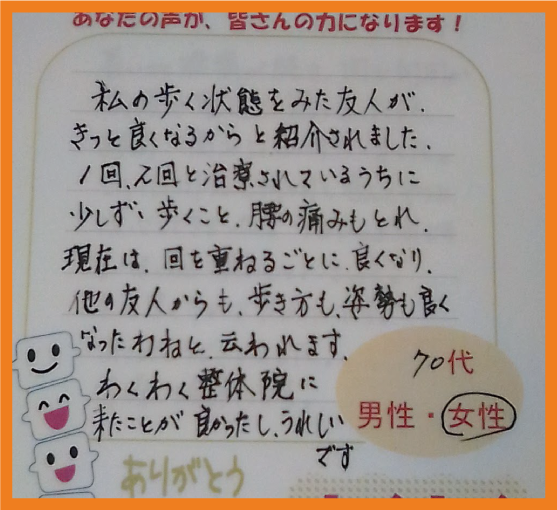 あなたの声が、皆さんの力になります！
私の歩く状態をみた友人が、
きっと良くなるからと紹介されました、
1回、2回と治療されているうちに
少しずつ歩くこと、腰の痛みもとれ、
現在は、回を重ねるごとに、良くなり、
他の友人からも、歩き方も、姿勢も良く
なったわねと、云われます、
わくわく整体院に
来たことが良かったし、うれしい
です
70代
男性・女性
ありがとう